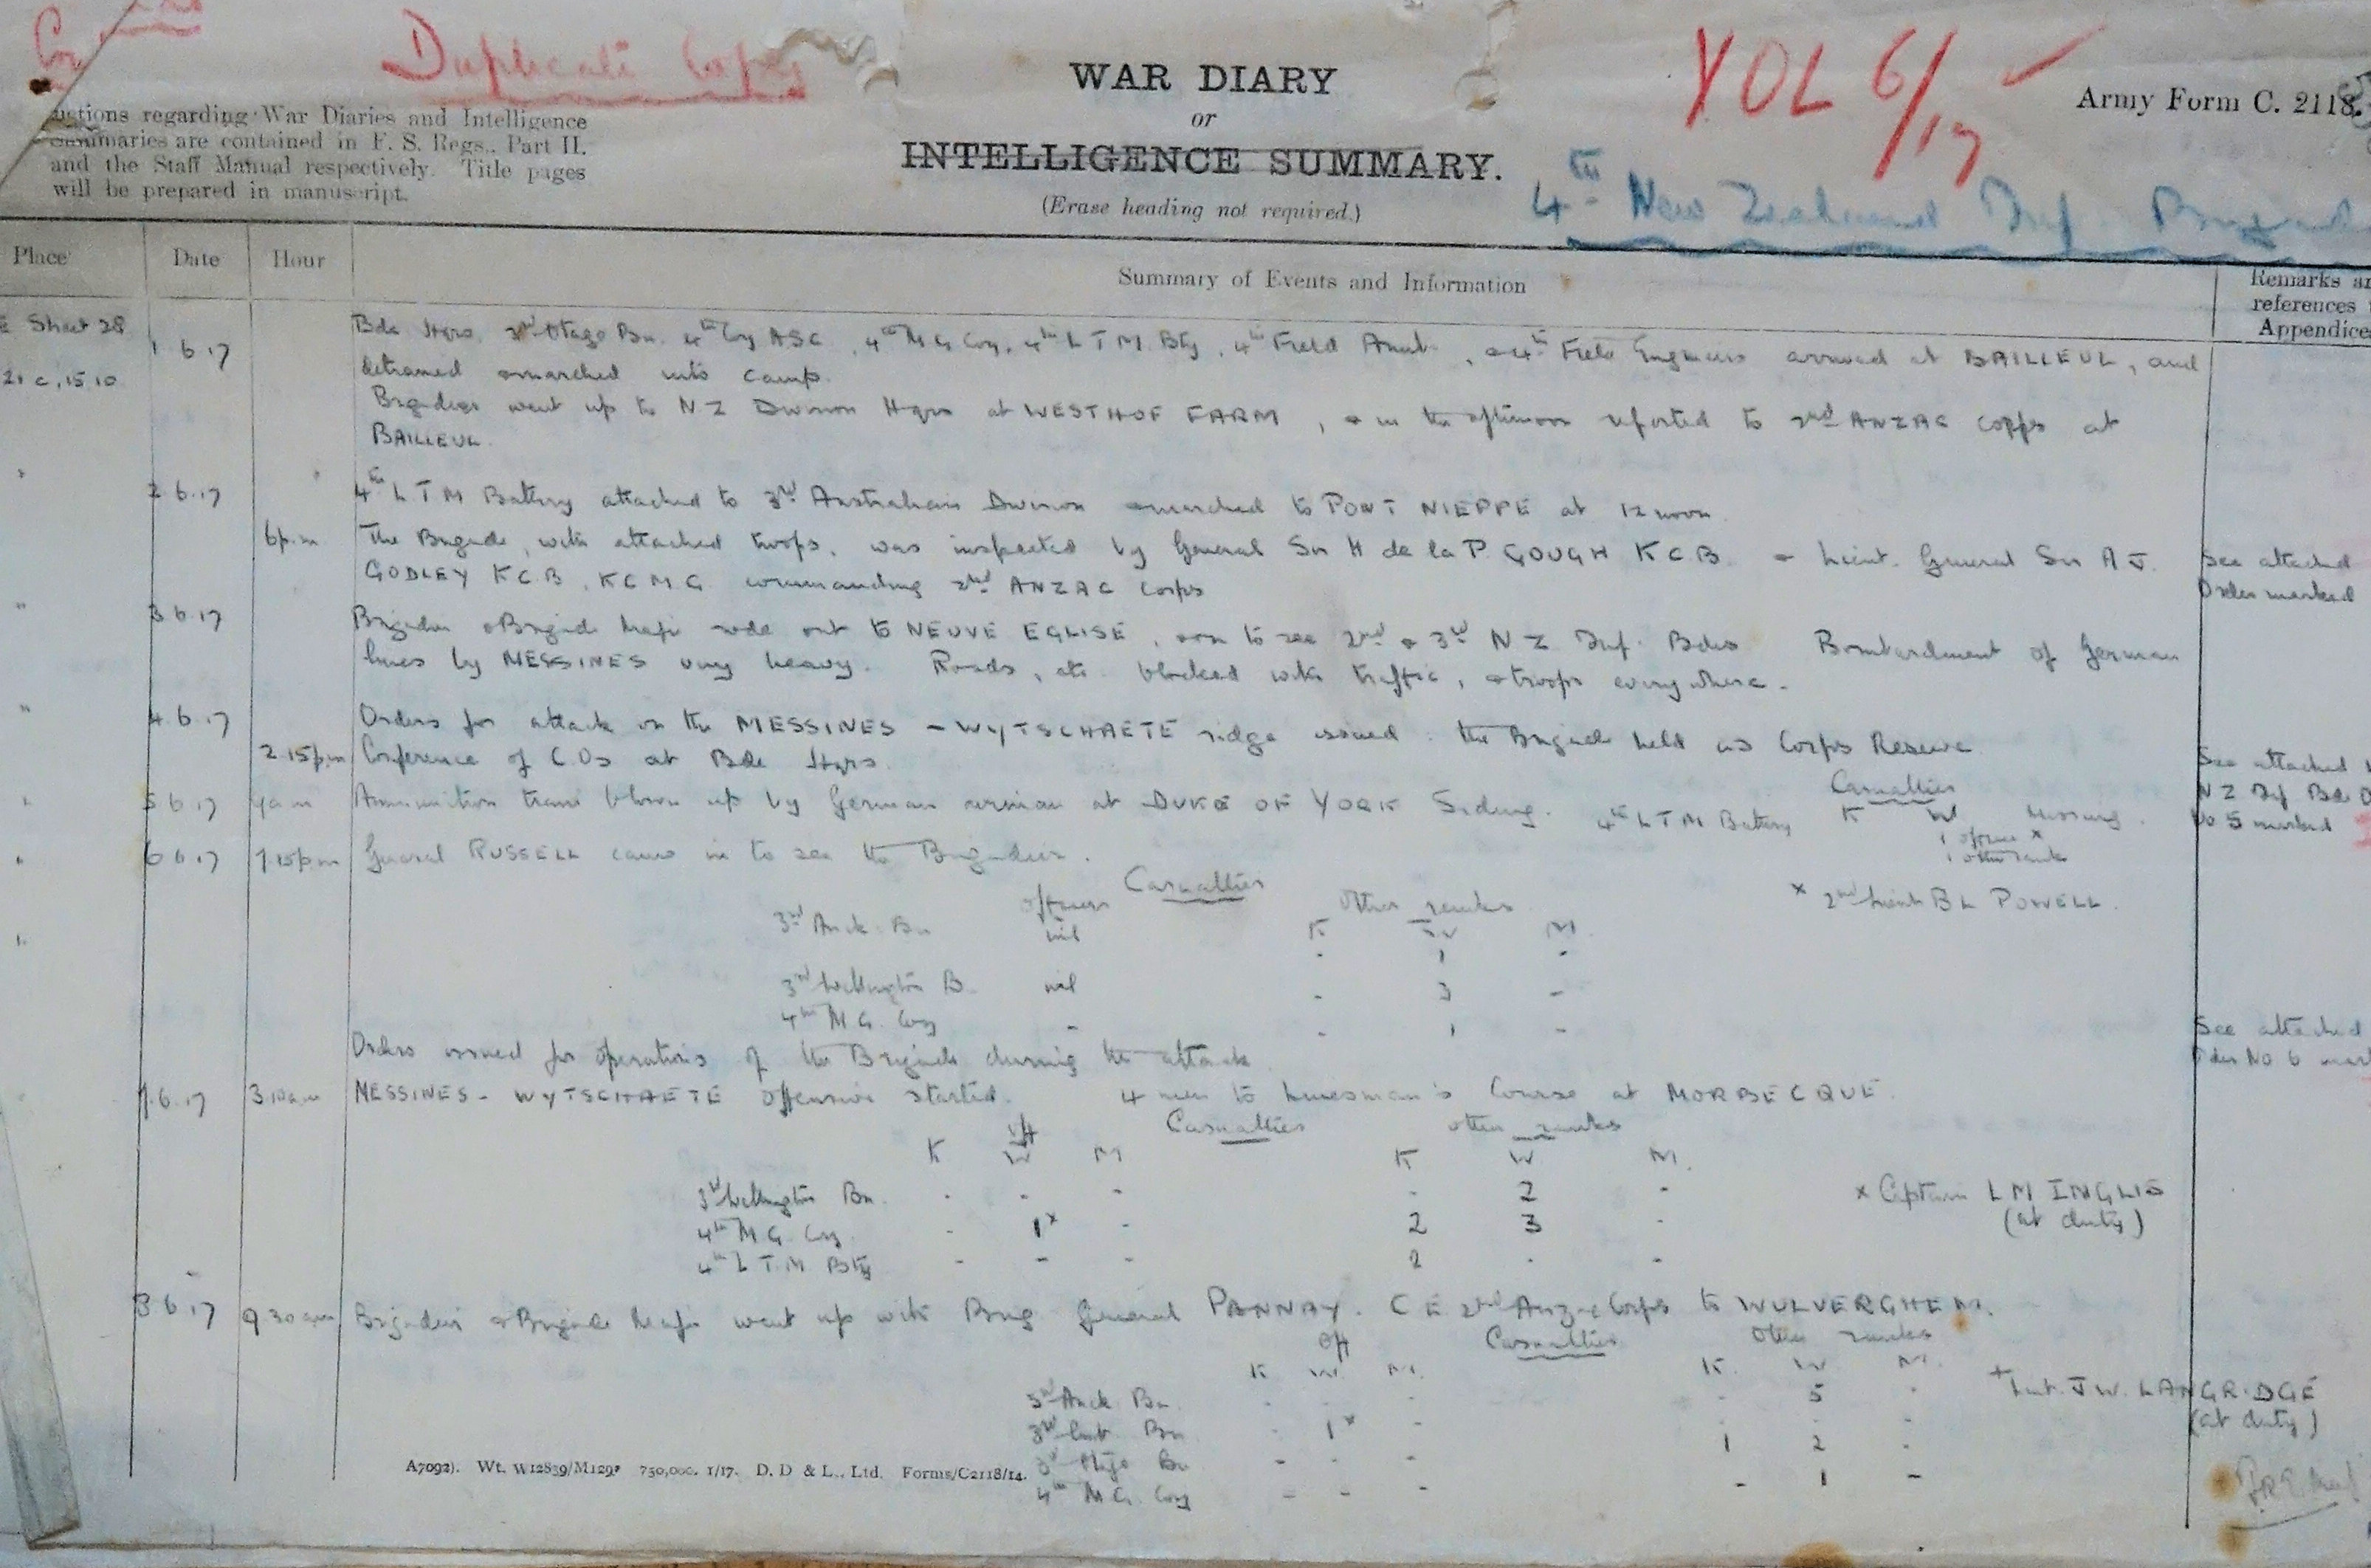 Duplicate Copy
WAR DIARY
or
INTELLIGENCE SUMMARY.
(Erase heading not required.)
VOL 6/17
Army Form C. 2118.
uctions regarding War Diaries and Intelligence
Summaries are contained in F. S. Regs., Part II.
and the Staff Manual respectively. Title pages
will be prepared in manuscript.
4th New Zealand Inf. Brigade
Place
Date
Hour
Summary of Events and Information
Remarks an
references
Appendice
Sheet 28
21 c, 15 10
1 6 17
Bde Hqrs. 3rd Otago Bn. 4th Coy ASC, 4th M G Coy, 4th L T M Bty, 4th Field Amb., & 4th Field Engineers arrived at BAILLEUL, and
detrained & marched into camp.
Brigadier went up to N Z Division Hqrs at WESTHOF FARM, & in the afternoon reported to 2nd ANZAC Corps at
BAILLEUL.
"
2 6 17
4th L T M Battery attached to 3rd Australian Division & marched to PONT NIEPPE at 12 noon
6 p.m
The Brigade, with attached troops, was inspected by General Sir H de la P. GOUGH K C B. & Lieut. General Sir A J.
GODLEY K C B, K C M G commanding 2nd ANZAC Corps
See attached
Order marked
"
3 6 17
Brigadier & Brigade Major rode out to NEUVE EGLISE, & on to see 2nd & 3rd N Z Inf. Bdes Bombardment of German
lines by MESSINES very heavy. Roads, etc. blocked with traffic, & troops everywhere.
"
4. 6. 17
Orders for attack on the MESSINES - WYTSCHAETE ridge issued. the Brigade held as Corps Reserve
2 15 p.m
Conference of C.Os at Bde Hqrs.
See attached
N Z Inf Bde O
No 5 marked
"
5 6 17
4 a m
Ammunition train blown up by German airman at DUKE OF YORK Siding.
Casualties
4th L T M Battery K W Missing.
1 officer x
1 other rank
"
6 6 17
7 15 p.m
General RUSSELL came in to see the Brigadier.
x 2nd Lieut B L POWELL.
Casualties
Officers Other ranks
K W M
3rd Auck. Bn nil - 1 -
3rd Wellington B. nil - 3 -
4th M G. Coy - - 1 -
Orders issued for operations of the Brigade during the attack.
See attached
Order No 6 mar
7. 6. 17
3 10 a m
MESSINES - WYTSCHAETE offensive started. 4 men to Linesman's Course at MORBECQUE.
Casualties
Off other ranks
K W M K W M.
3rd Wellington Bn. - - - - 2 -
4th M G. Coy. - 1x - 2 3 -
4th L T. M Bty - - - 2 - -
x Captain L M INGLIS
(at duty)
8 6 17
9 30 a m
Brigadier & Brigade Major went up with Brig General PANNAY. C E 2nd Anzac Corps to WULVERGHEM.
Casualties
Off Other ranks
K W M. K. W M.
3rd Auck Bn. - - - - 5 -
3rd Cant. Bn - 1x - - - -
3rd Otago Bn - - - 1 2 -
4th M G. Coy - - - - 1 -
+ Lieut. J W. LANGRIDGE
(at duty)
A7092). Wt. W12839/M1297 750,000. 1/17. D. D & L., Ltd. Forms/C2118/14.